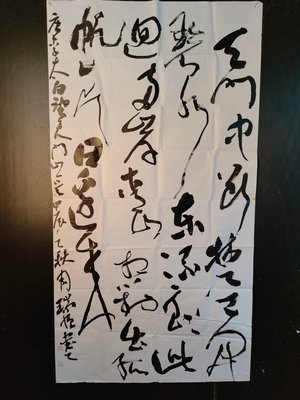 天門中斷楚江開
碧水東流至此
迴兩岸青山相對出孤
帆一片日邊來
唐李太白望天門山 甲辰之秋月 書之